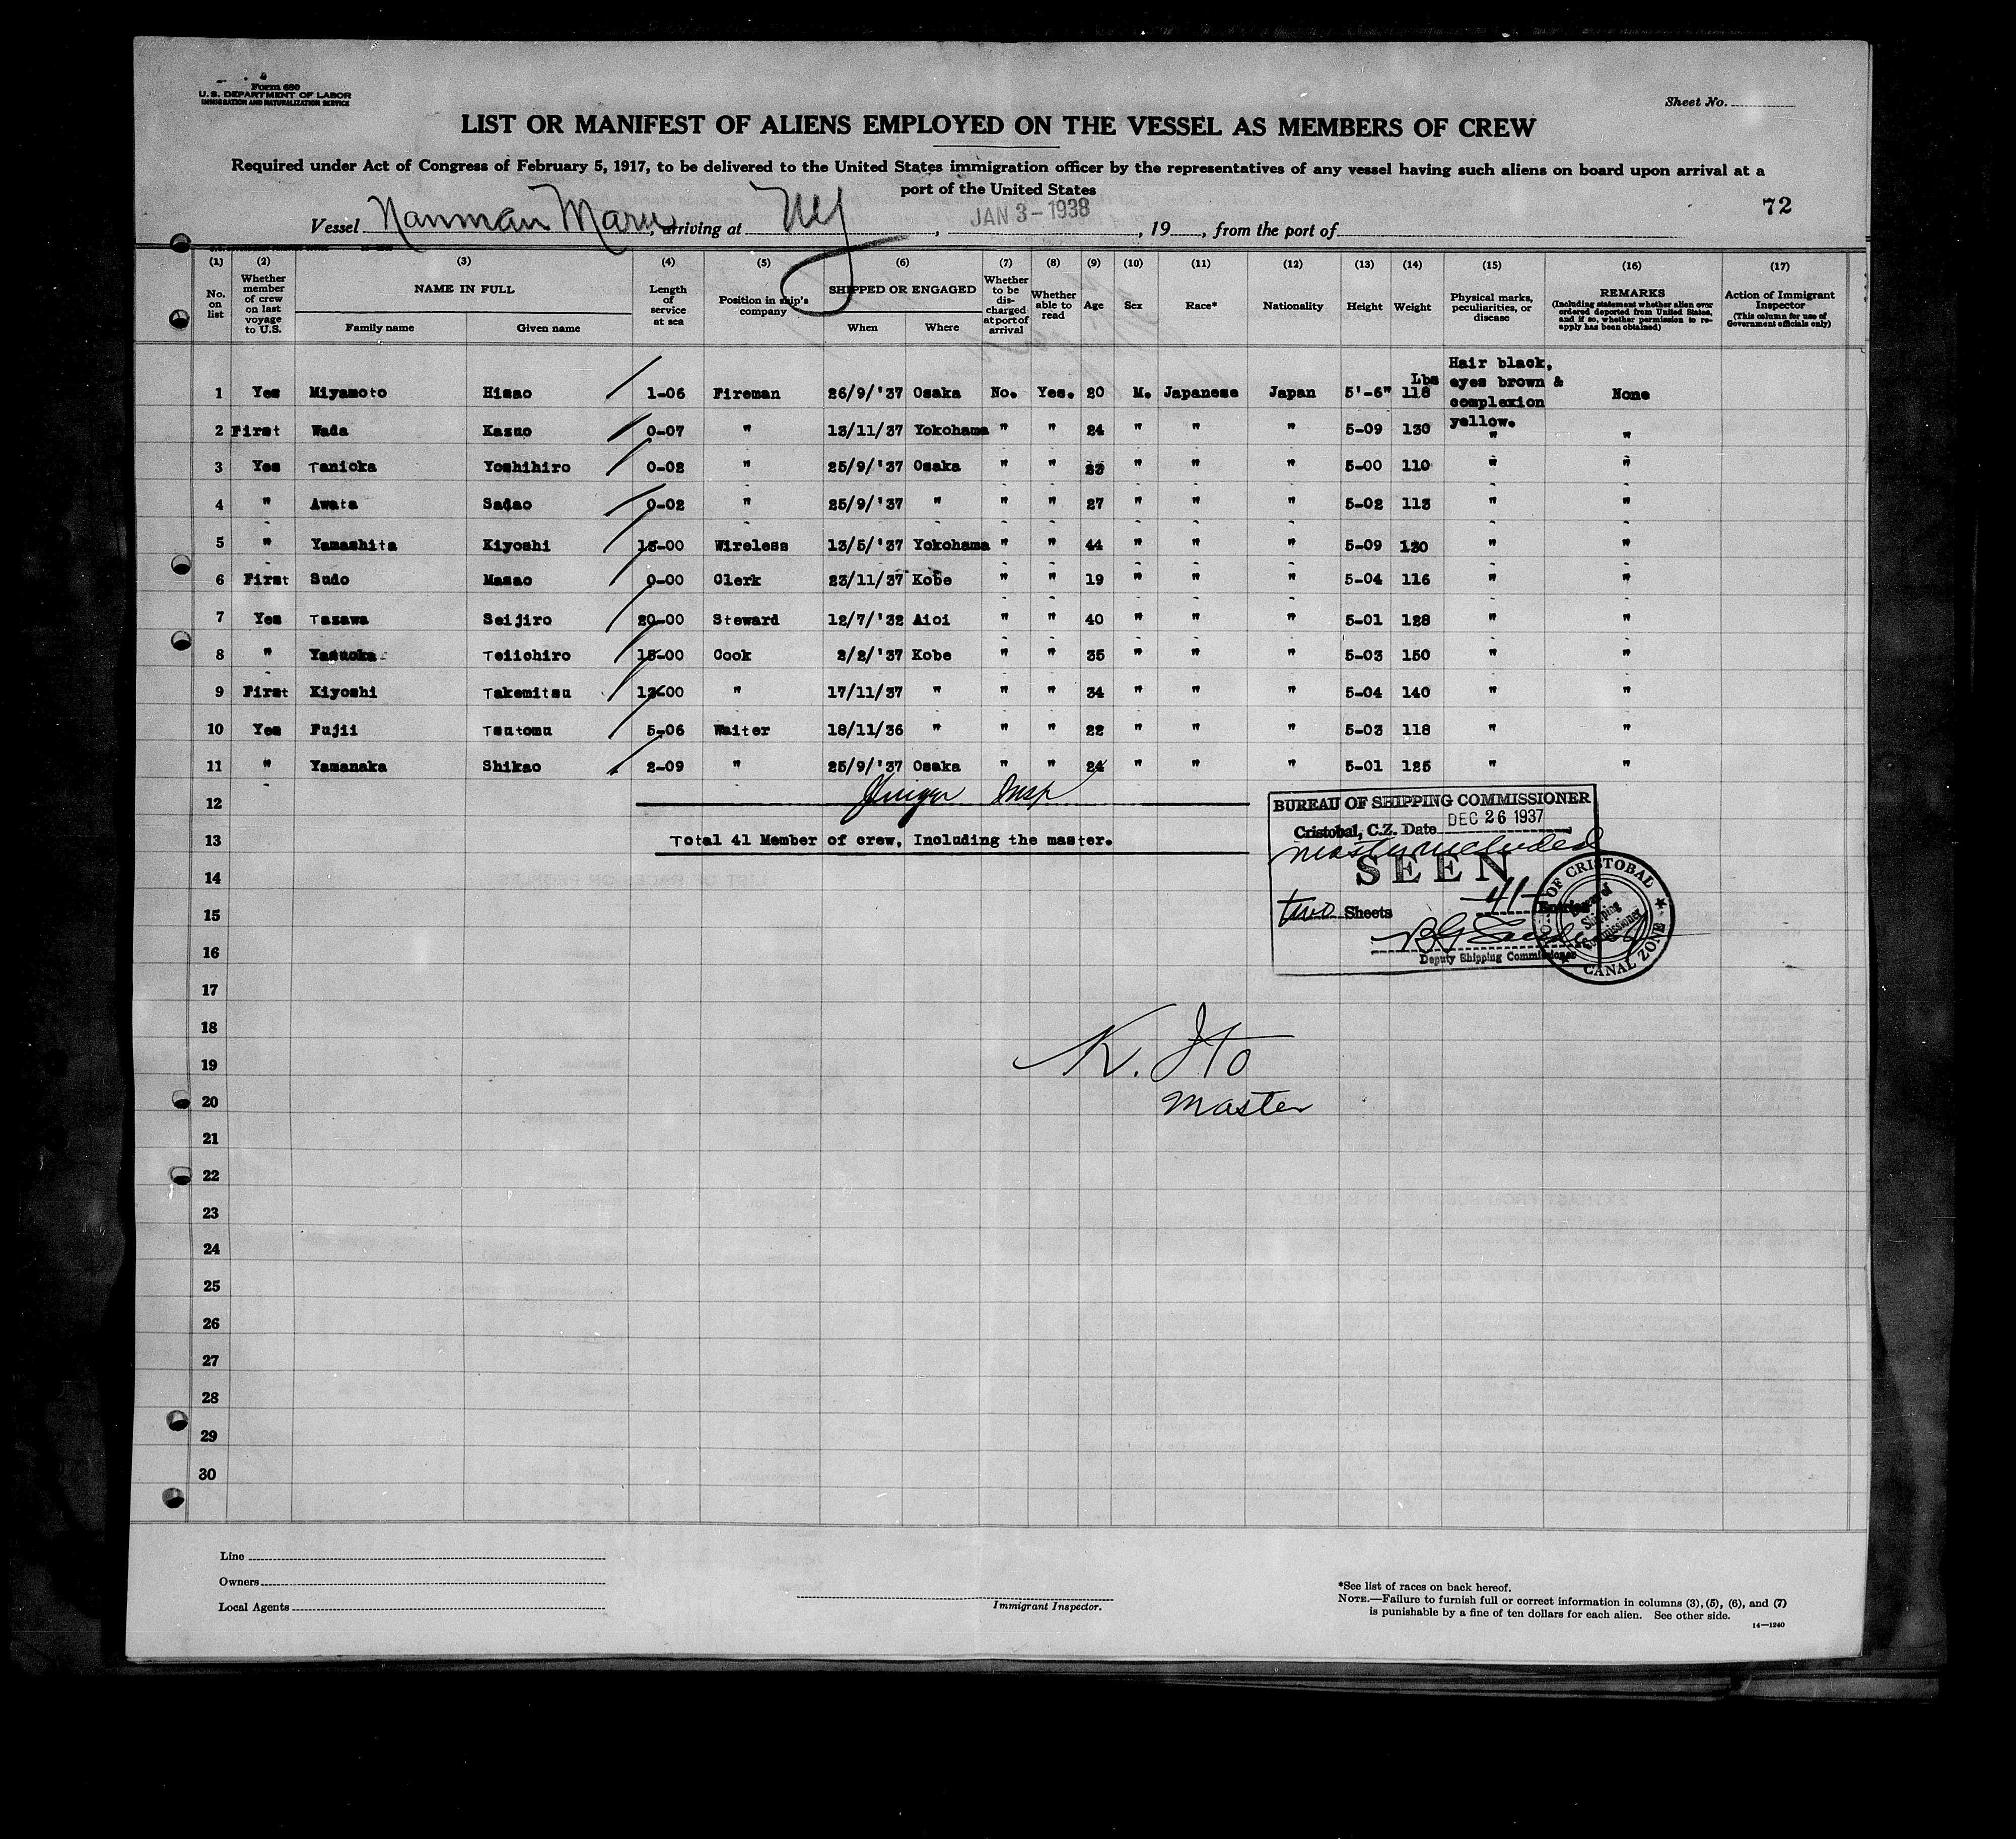 Form 680
U. S. DEPARTMENT OF LABOR
IMMIGRATION AND NATURALIZATION SERVICE
Sheet No.
LIST OR MANIFEST OF ALIENS EMPLOYED ON THE VESSEL AS MEMBERS OF CREW
Required under Act of Congress of February 5, 1917, to be delivered to the United States immigration officer by the representatives of any vessel having such aliens on board upon arrival at a
port of the United States
72
Vessel Nanman Maru, arriving at NY, JAN 3-1938, 19, from the port of
(1) (2) (3) (4) (5) (6) (7) (8) (9) (10) (11) (12) (13) (14) (15) (16) (17)
No. on list Whether member of crew on last voyage to U.S. NAME IN FULL Family name Given name Length of service at sea Position in ship's company SHIPPED OR ENGAGED When Where Whether to be discharged at port of arrival Whether able to read Age Sex Race* Nationality Height Weight Physical marks, peculiarities, or disease REMARKS (Including statement whether alien ever ordered deported from United States, and if so, whether permission to reapply has been obtained) Action of Immigrant Inspector (This column for use of Government officials only)
1 Yes Miyamoto Hisao 1-06 Fireman 26/9/'37 Osaka No. Yes. 20 M. Japanese Japan 5'-6" Lbs 118 Hair black, eyes brown & complexion yellow. None
2 First Wada Kazuo 0-07 " 13/11/37 Yokohama " " 24 " " " 5-09 130 " "
3 Yes Tanioka Yoshihiro 0-02 " 25/9/'37 Osaka " " 23 " " " 5-00 110 " "
4 " Awata Sadao 0-02 " 25/9/'37 " " " 27 " " " 5-02 113 " "
5 " Yamashita Kiyoshi 15-00 Wireless 13/5/'37 Yokohama " " 44 " " " 5-09 130 " "
6 First Sudo Masao 0-00 Clerk 23/11/37 Kobe " " 19 " " " 5-04 116 " "
7 Yes Tazawa Seijiro 20-00 Steward 12/7/'32 Aioi " " 40 " " " 5-01 128 " "
8 " Yasuoka Teiichiro 15-00 Cook 2/2/'37 Kobe " " 35 " " " 5-03 150 " "
9 First Kiyoshi Takemitsu 12-00 " 17/11/37 " " " 34 " " " 5-04 140 " "
10 Yes Fujii Tsutomu 5-06 Waiter 18/11/36 " " " 22 " " " 5-03 118 " "
11 " Yamanaka Shikao 2-09 " 25/9/'37 Osaka " " 24 " " " 5-01 125 " "
12 Insp
13 Total 41 Member of crew, Including the master.
BUREAU OF SHIPPING COMMISSIONER
Cristobal, C.Z. Date DEC 26 1937
master included
SEEN
two Sheets 41
Deputy Shipping Commissioner
OF CRISTOBAL
Shipping Commissioner
CANAL ZONE
14
15
16
17
18
K. Ito
19
Master
20
21
22
23
24
25
26
27
28
29
30
Line
Owners
Local Agents
Immigrant Inspector.
*See list of races on back hereof.
NOTE.—Failure to furnish full or correct information in columns (3), (5), (6), and (7)
is punishable by a fine of ten dollars for each alien. See other side.
14—1240